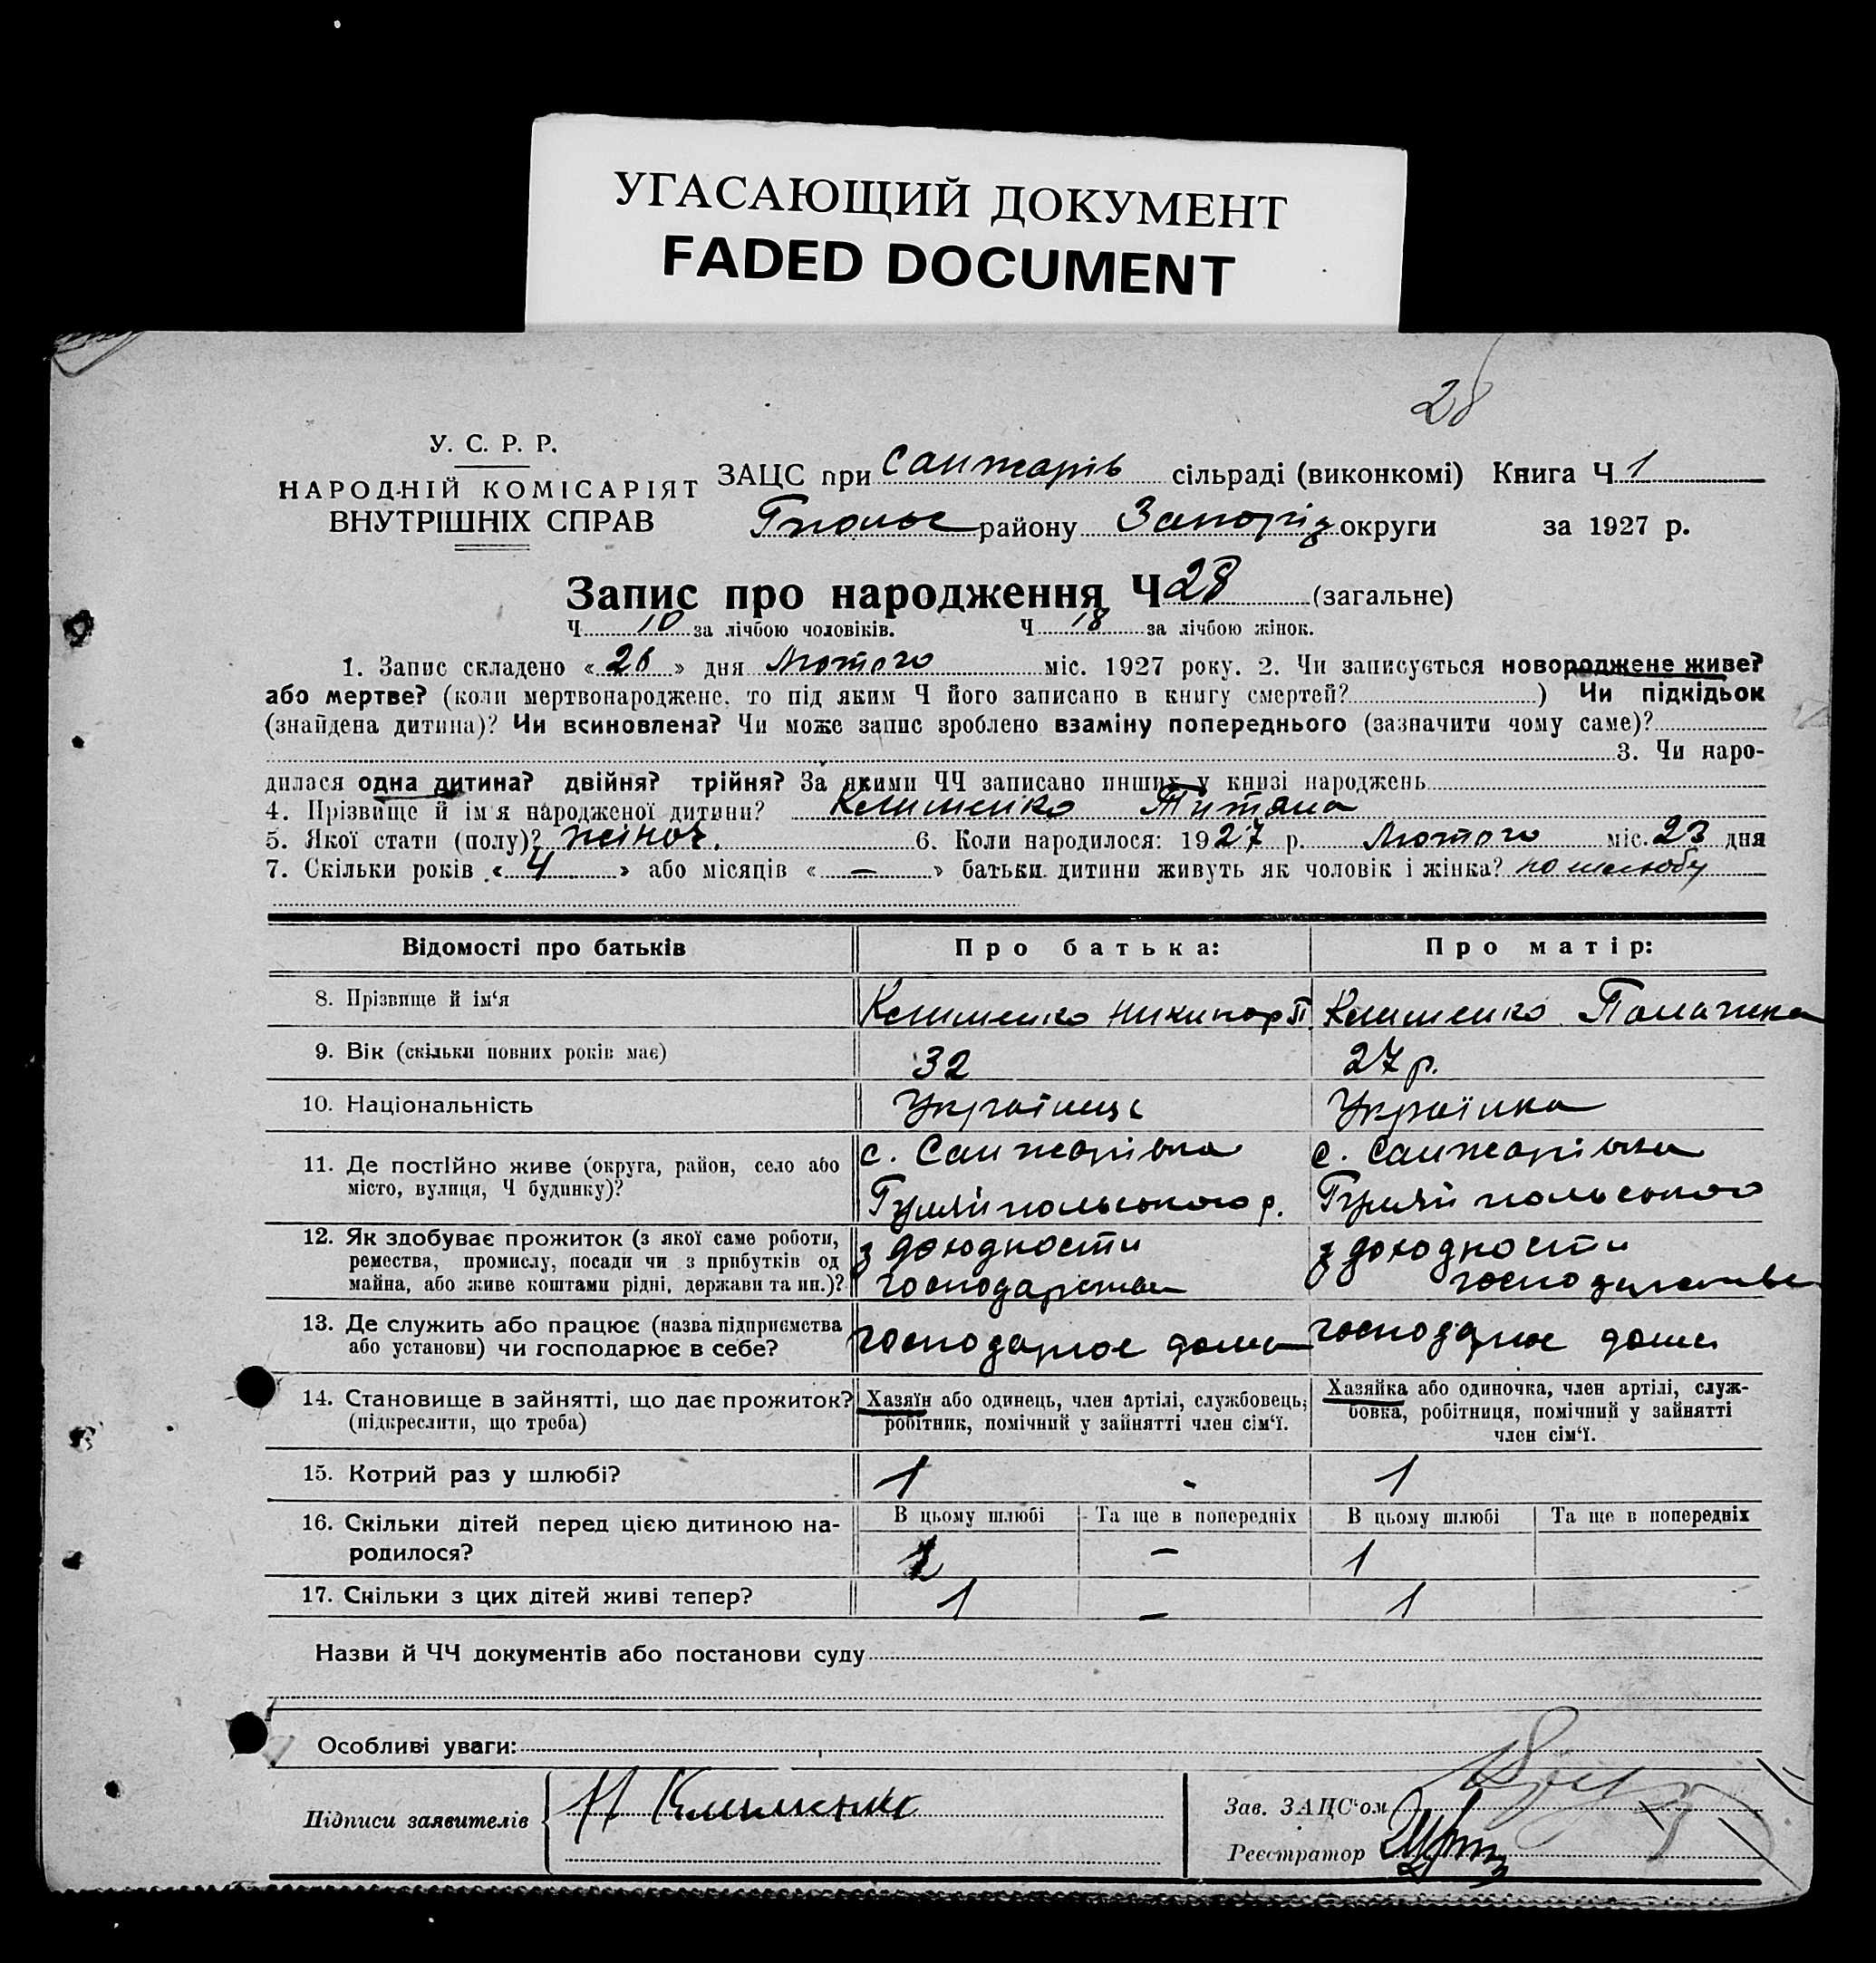 УГАСАЮЩИЙ ДОКУМЕНТ
FADED DOCUMENT
28
У. С. Р. Р.
НАРОДНІЙ КОМІСАРІЯТ
ВНУТРІШНІХ СПРАВ
ЗАЦС при Санжарів сільраді (виконкомі) Книга Ч 1
Гпольс району Запоріз округи за 1927 р.
Запис про народження Ч 28 (загальне)
Ч 10 за лічбою чоловіків. Ч 18 за лічбою жінок.
1. Запис складено «26» дня Лютого міс. 1927 року. 2. Чи записується новороджене живе?
або мертве? (коли мертвонароджене, то під яким Ч його записано в книгу смертей? ) Чи підкідьок
(знайдена дитина)? Чи всиновлена? Чи може запис зроблено взаміну попереднього (зазначити чому саме)?
3. Чи наро-
дилася одна дитина? двійня? трійня? За якими ЧЧ записано инших у книзі народжень
4. Прізвище й ім'я народженої дитини? Клименко Титяна
5. Якої стати (полу)? жіноч. 6. Коли народилося: 1927 р. Лютого міс. 23 дня
7. Скільки років «4» або місяців «—» батьки дитини живуть як чоловік і жінка? по шлюбу
Відомості про батьків Про батька: Про матір:
8. Прізвище й ім'я Клименко Никипор П. Клименко Палажка
9. Вік (скільки повних років має) 32 27 р.
10. Національність Українець Українка
11. Де постійно живе (округа, район, село або с. Санжарівка с. Санжарівка
місто, вулиця, Ч будинку)? Гуляйпольського р. Гуляйпольського
12. Як здобуває прожиток (з якої саме роботи, з доходности з доходности
ремества, промислу, посади чи з прибутків од
майна, або живе коштами рідні, держави та ин.)? господарства господарства
13. Де служить або працює (назва підприємства господарює дома господарює дома
або установи) чи господарює в себе?
14. Становище в зайнятті, що дає прожиток? Хазяїн або одинець, член артілі, службовець, Хазяйка або одиночка, член артілі, служ-
(підкреслити, що треба) робітник, помічний у зайнятті член сім'ї. бовка, робітниця, помічний у зайнятті
член сім'ї.
15. Котрий раз у шлюбі? 1 - 1
16. Скільки дітей перед цією дитиною на- В цьому шлюбі Та ще в попередніх В цьому шлюбі Та ще в попередніх
родилося? 1 — 1
17. Скільки з цих дітей живі тепер? 1 — 1
Назви й ЧЧ документів або постанови суду
Особливі уваги:
Підписи заявителів Н Клименко
Зав. ЗАЦС'ом
Реєстратор